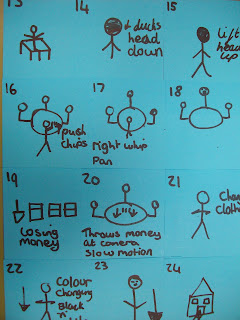 13
14
15
ducks
head
down
lift
head
up
16
17
18
push
chips
Right whip
Pan
19
20
21
Losing
money
Throws money
at camera
Slow motion
22
Colour
Changing
Black
'n'
23
24